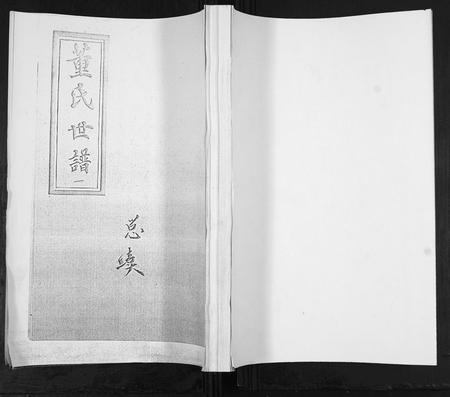 董氏世譜 一
总續